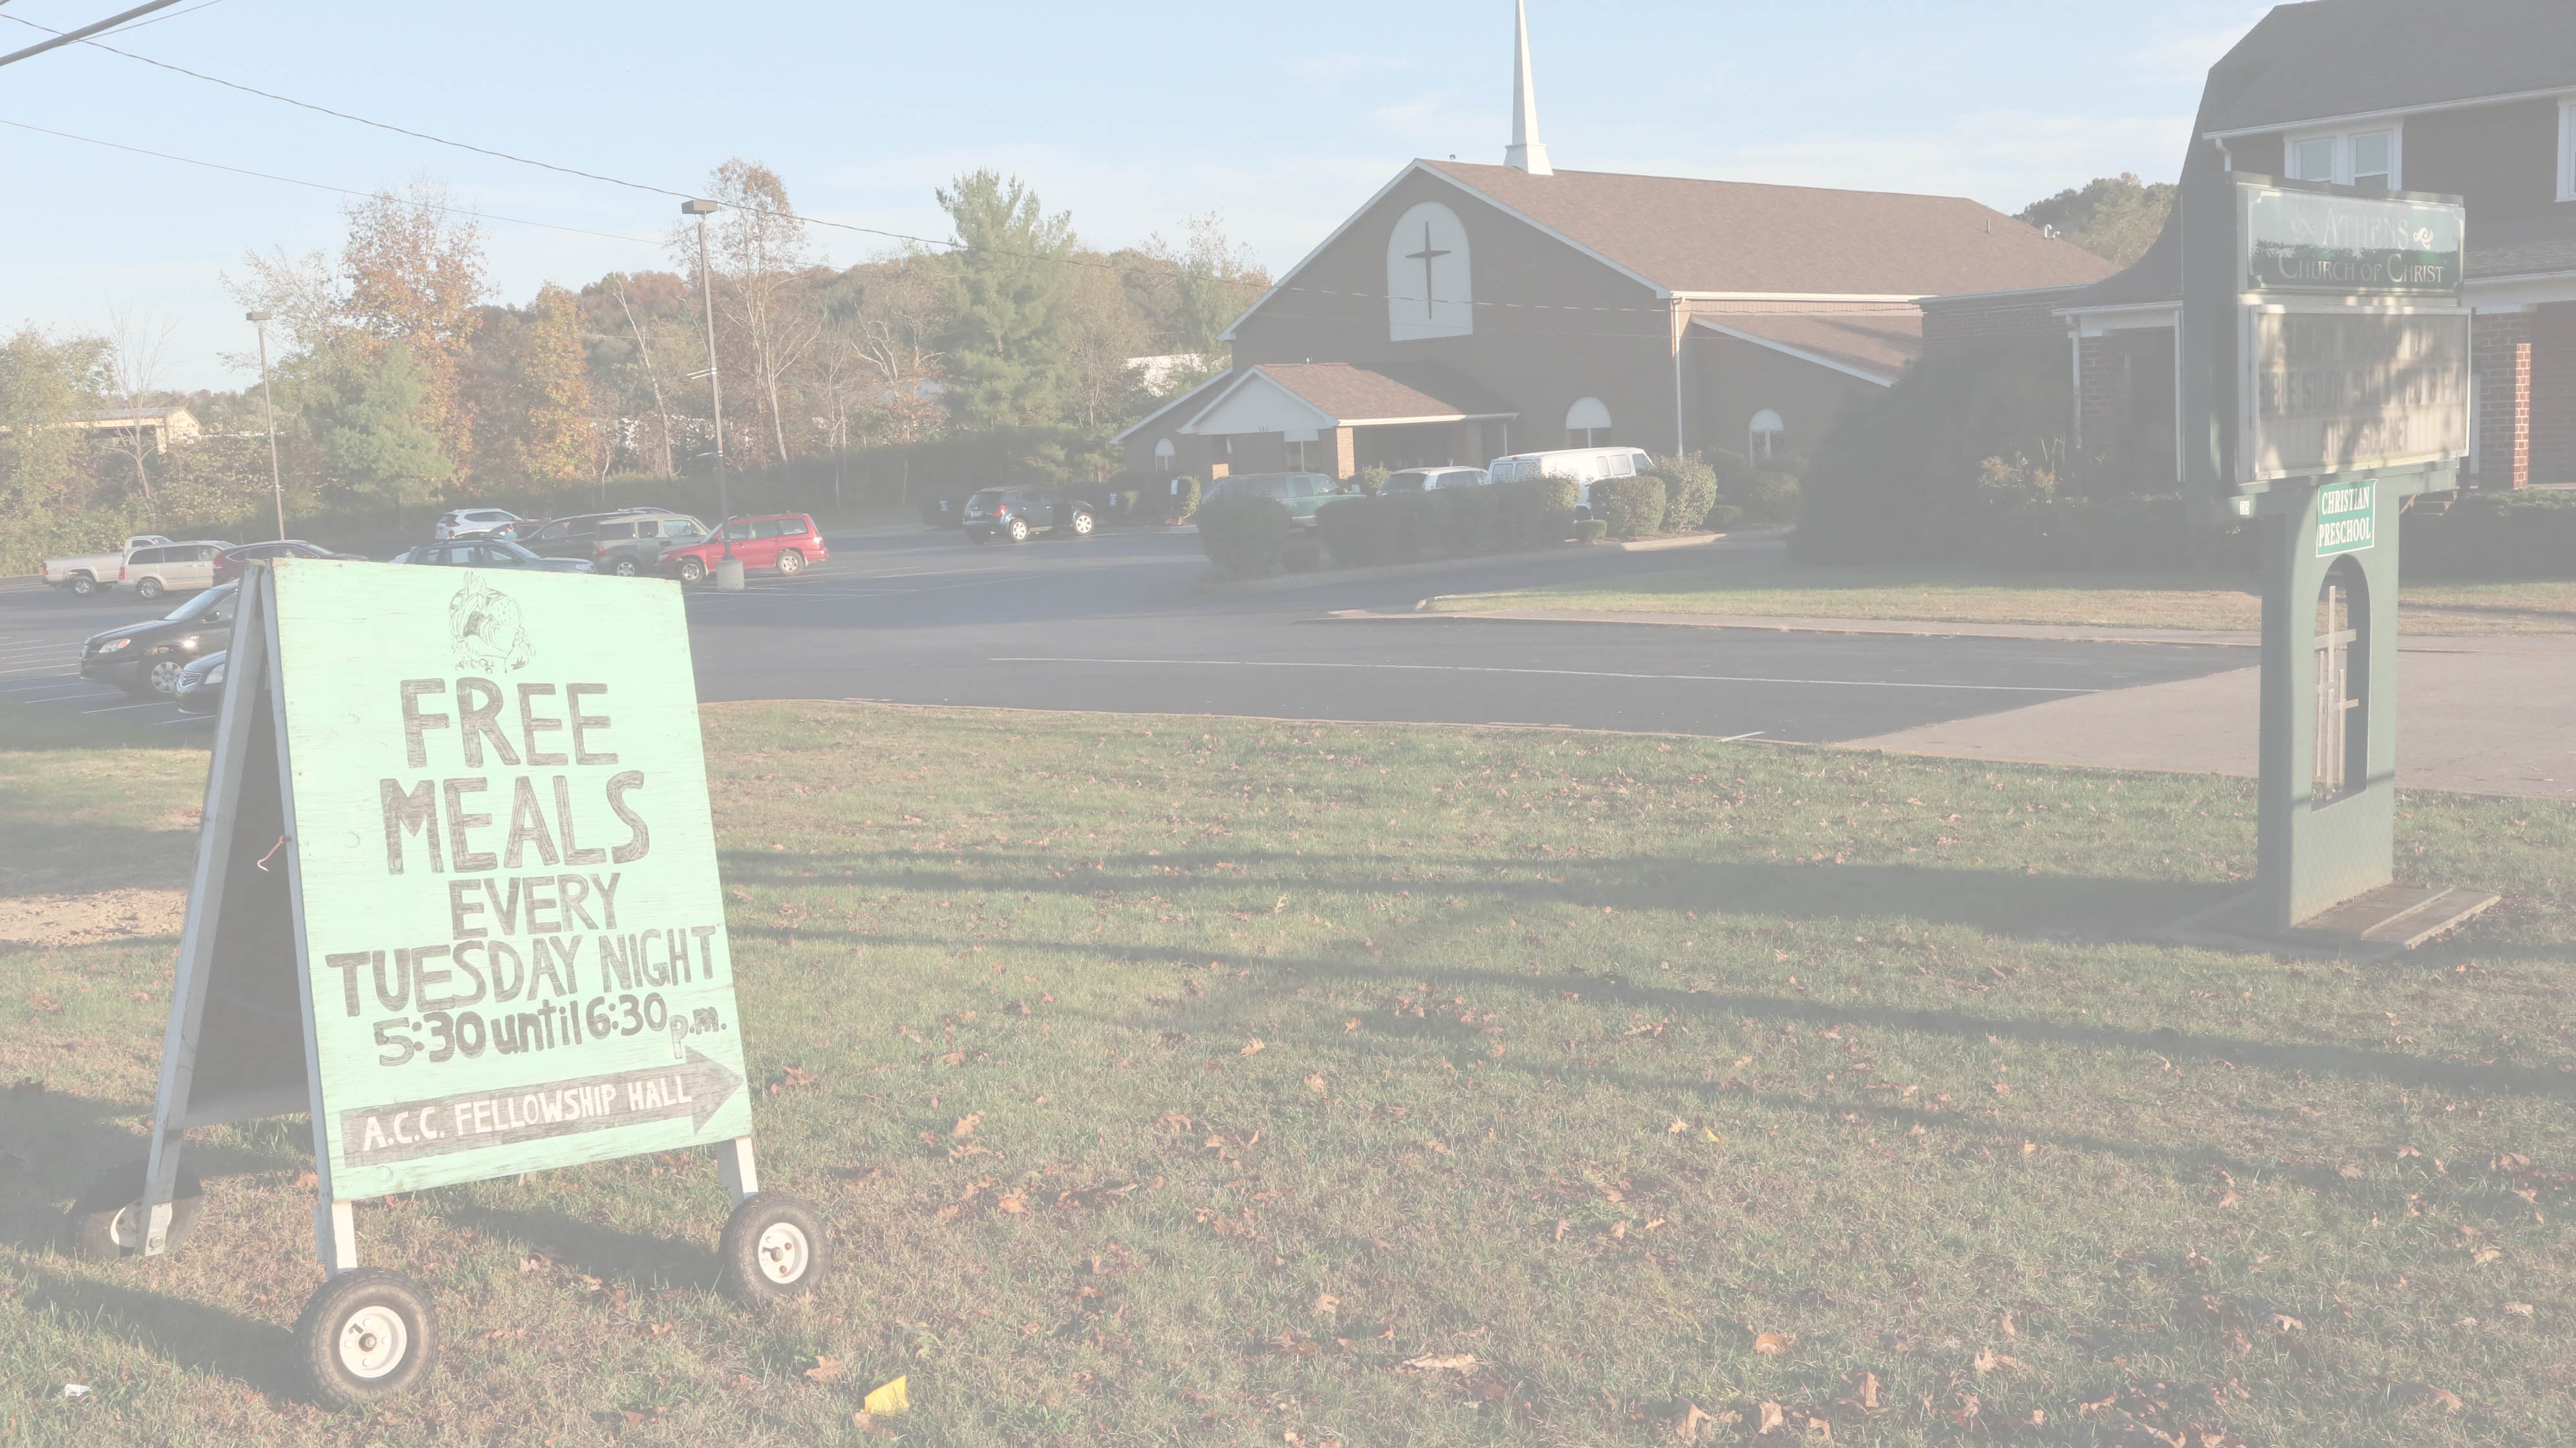 FREE
MEALS
EVERY
TUESDAY NIGHT
5:30 until 6:30 p.m.
A.C.C. FELLOWSHIP HALL
ATHENS
CHURCH OF CHRIST
CHRISTIAN
PRESCHOOL